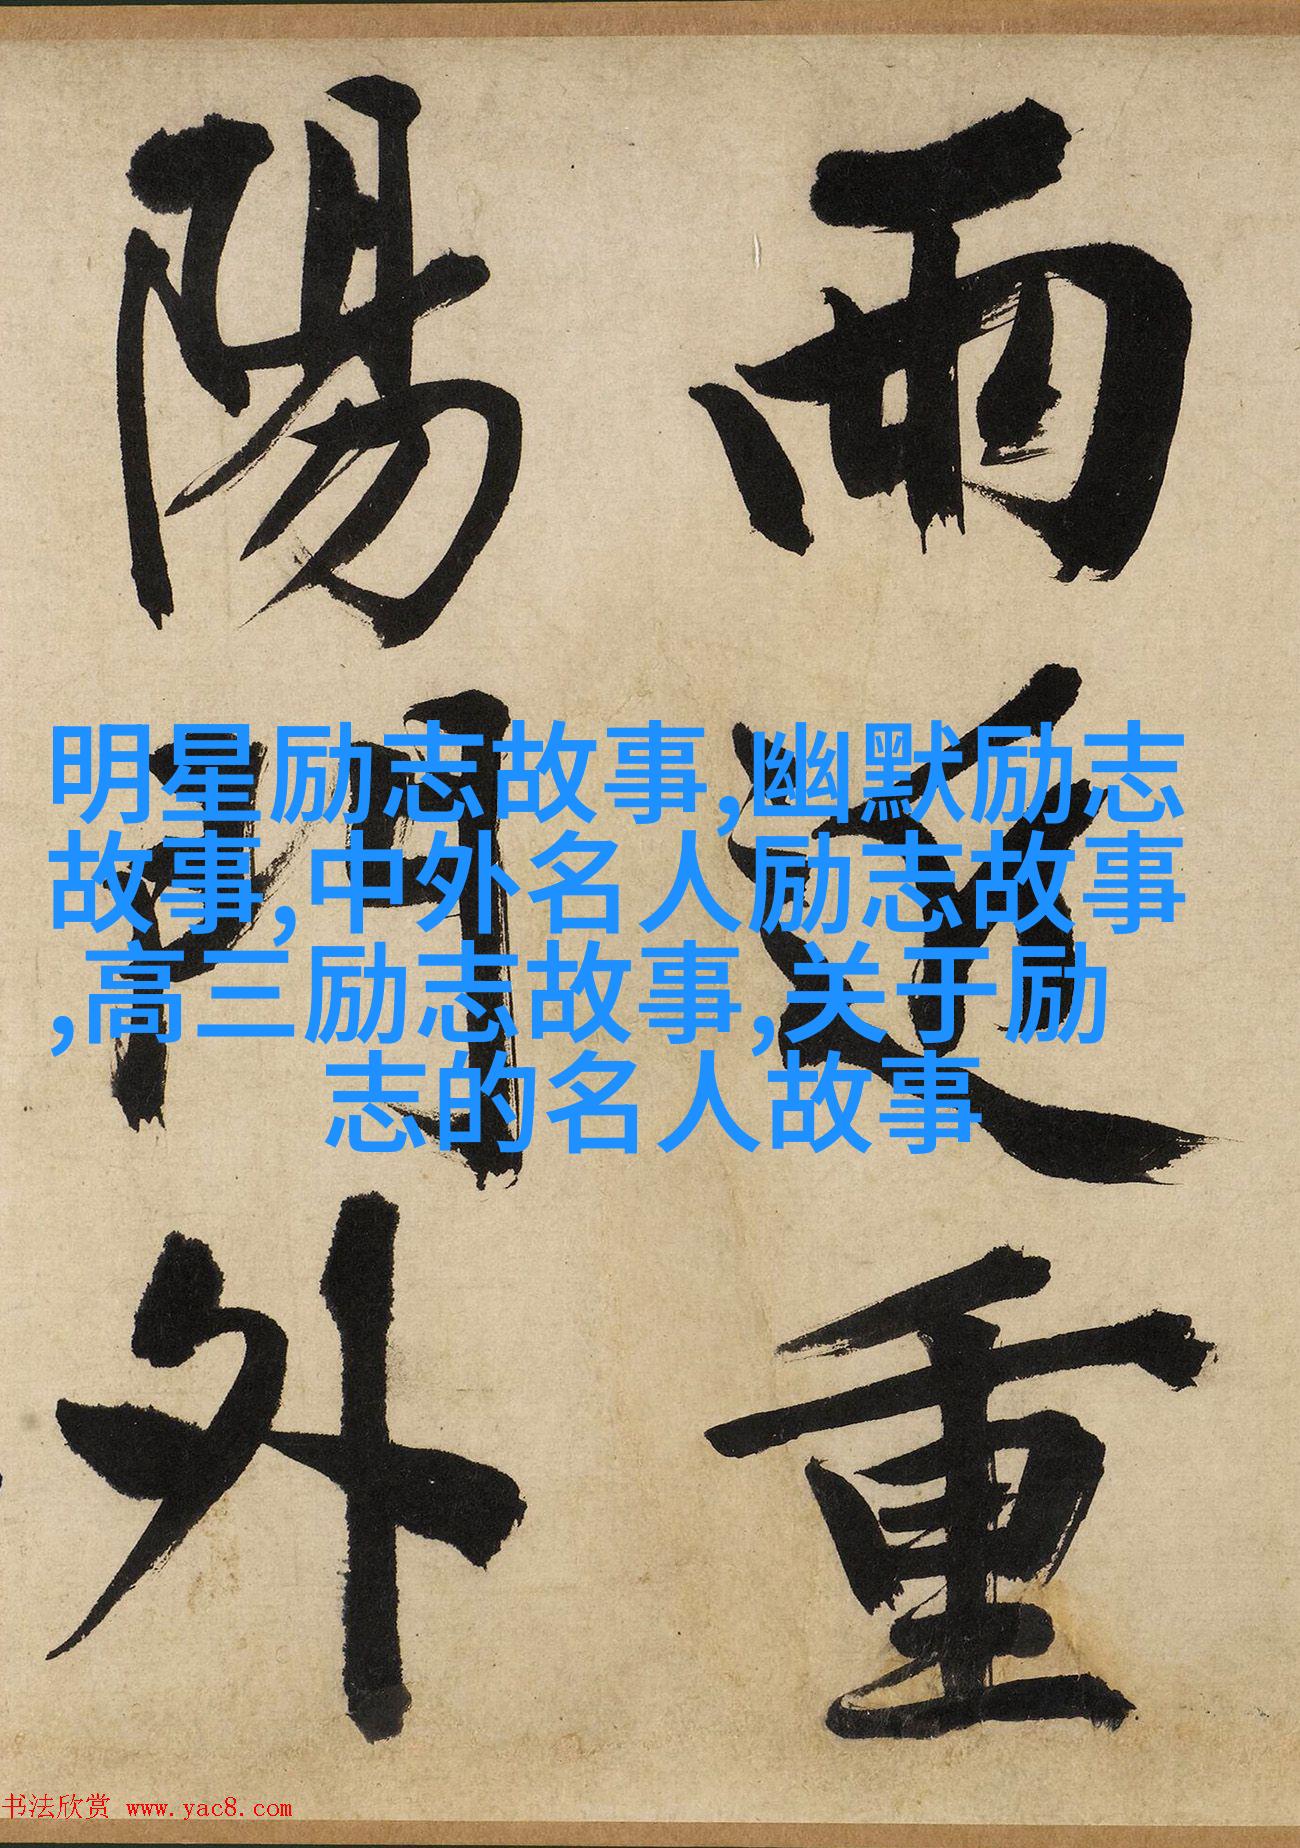 雨重
陽門外
明星励志故事,幽默励志
故事,中外名人励志故事
,高三励志故事,关于励
志的名人故事
书法欣赏 www.yac8.com